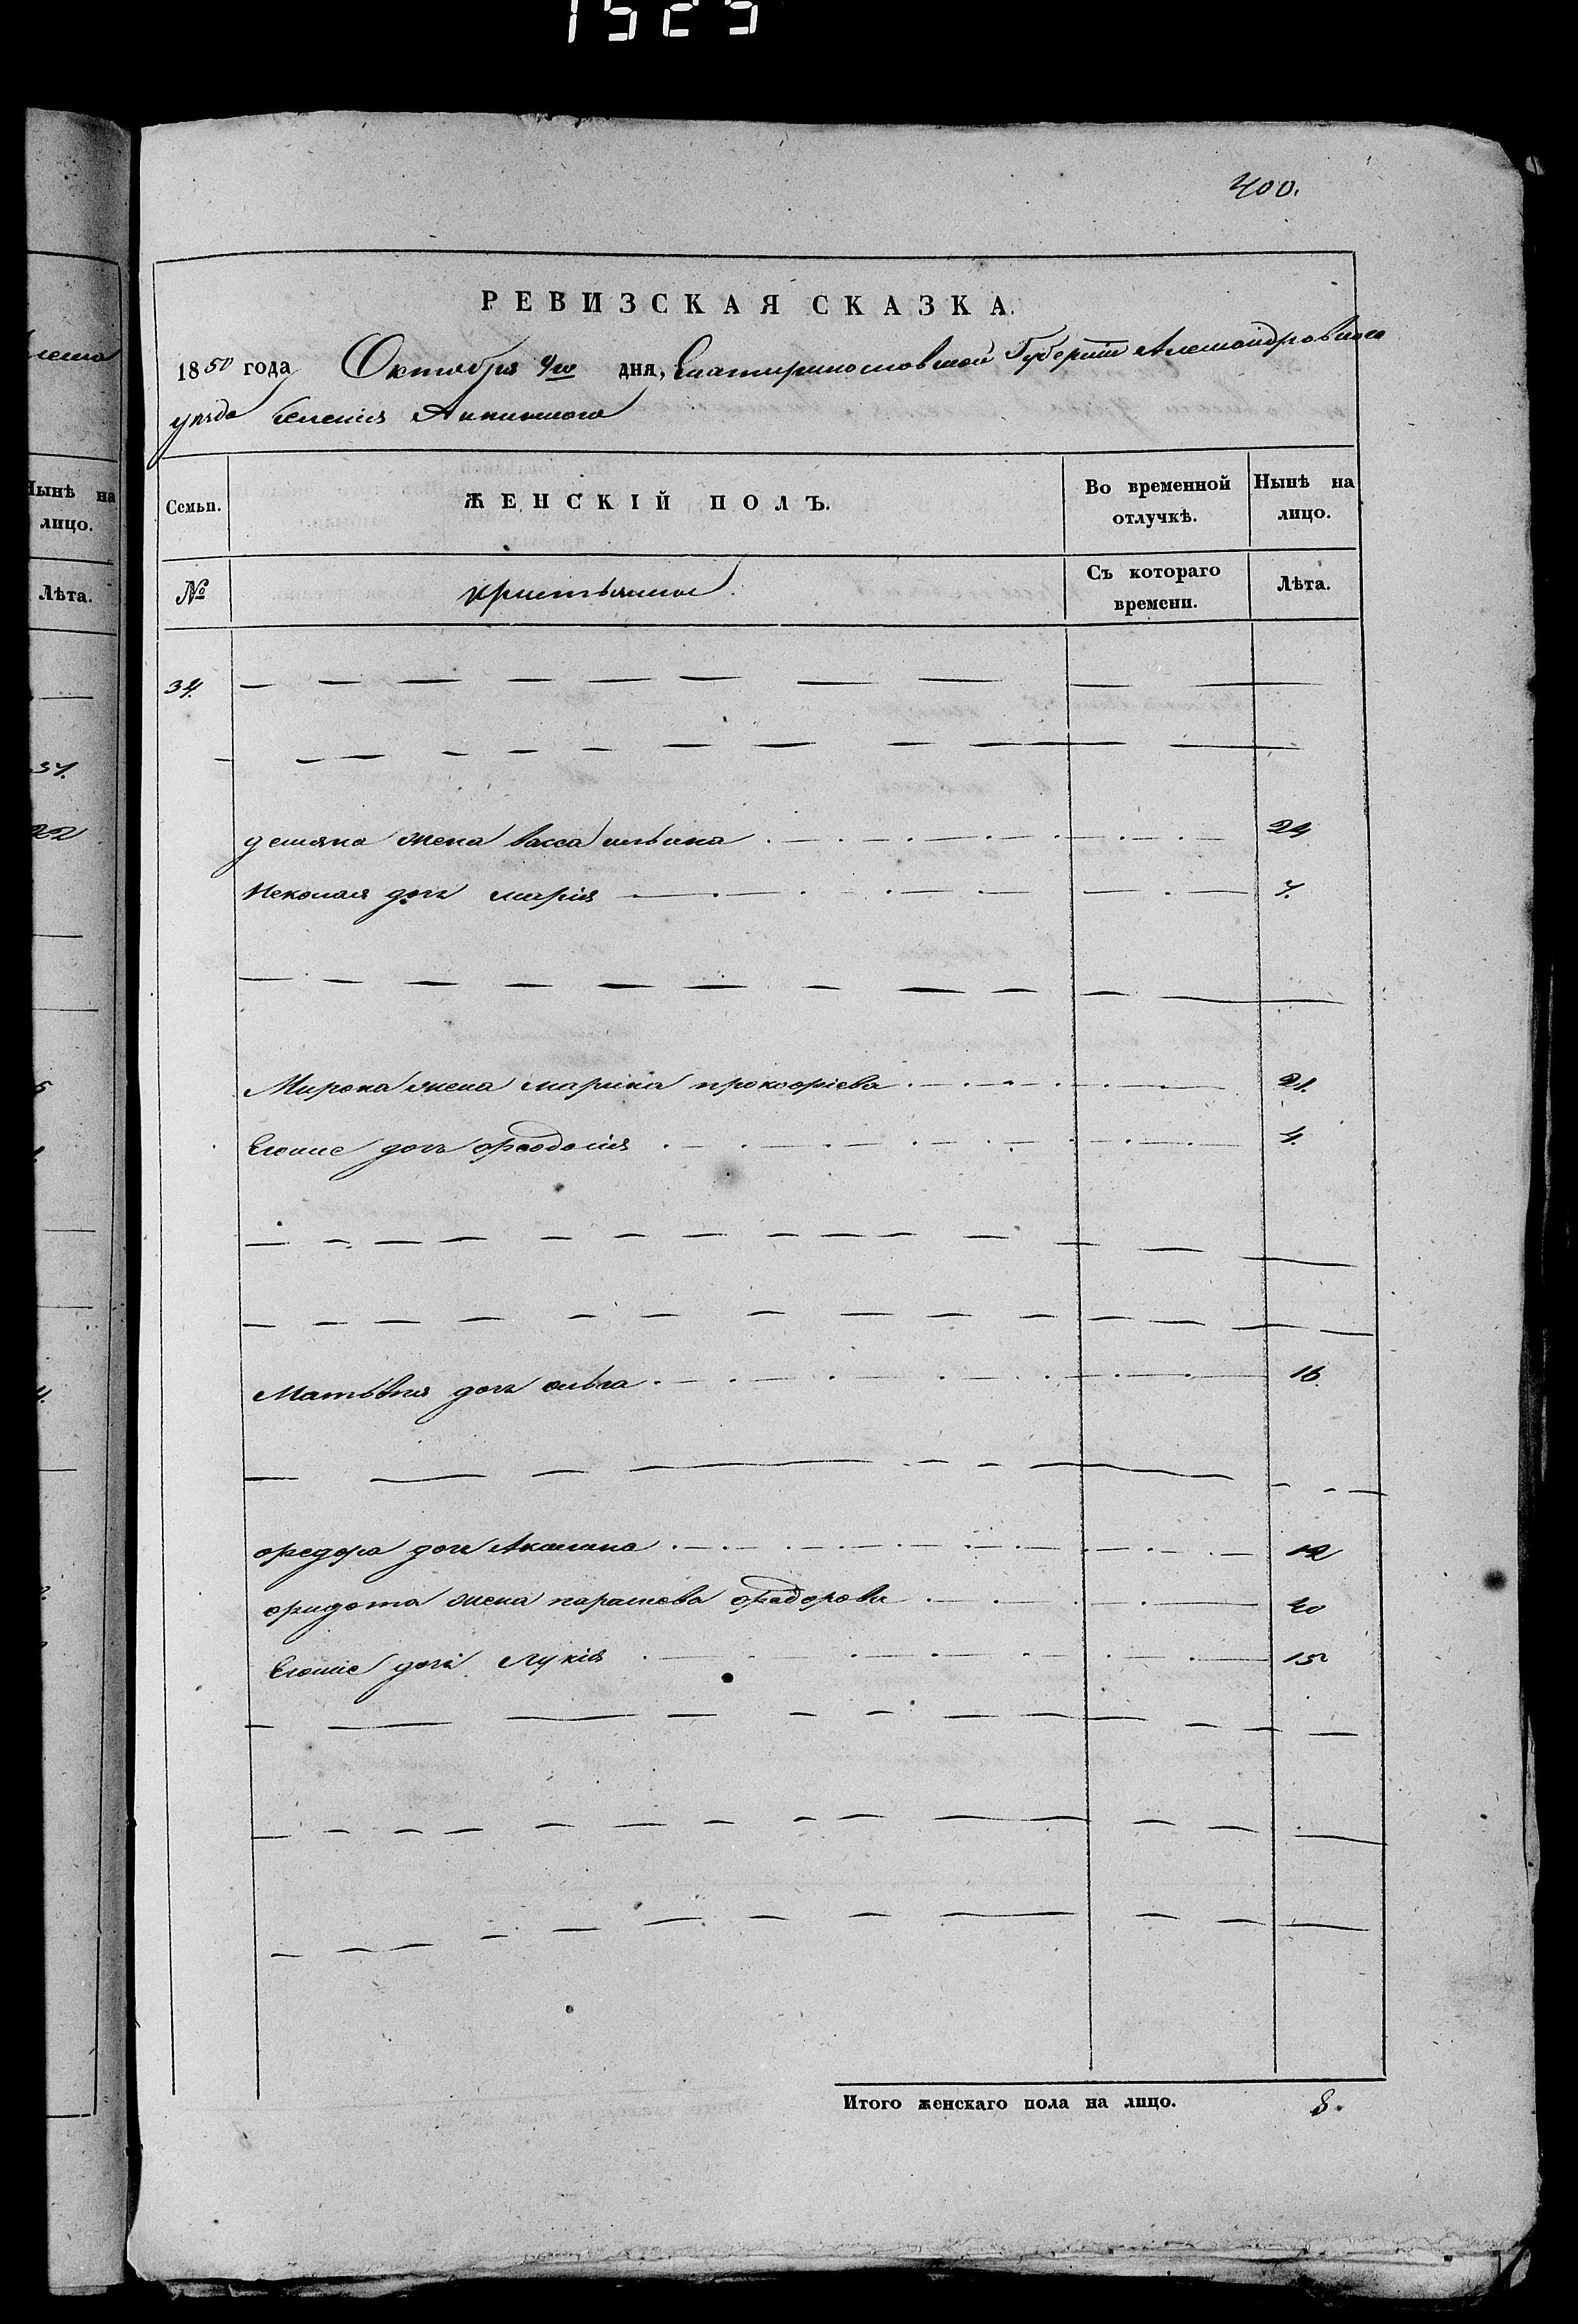 1525
400.
РЕВИЗСКАЯ СКАЗКА.
1850 года Октября 9го дня, Екатеринославской Губерніи Александровскаго
уезда селенія
Семьи.
ЖЕНСКІЙ ПОЛЪ.
Во временной отлучкѣ.
Нынѣ на лицо.
№
крестьянъ
Съ котораго времени.
Лѣта.
34.
демяна жена васса ильина 24
Николая дочь марія 7.
Мирона жена марина прокофіева 21.
Егоже дочь феодосія 4.
Матвѣя дочь ольга 16.
федора дочь Акилина 12
федота жена параскева федорова 40
Егоже дочь Лукія 15
Итого женскаго пола на лицо. 8.
Нынѣ на
лицо.
Лѣта.
37.
22